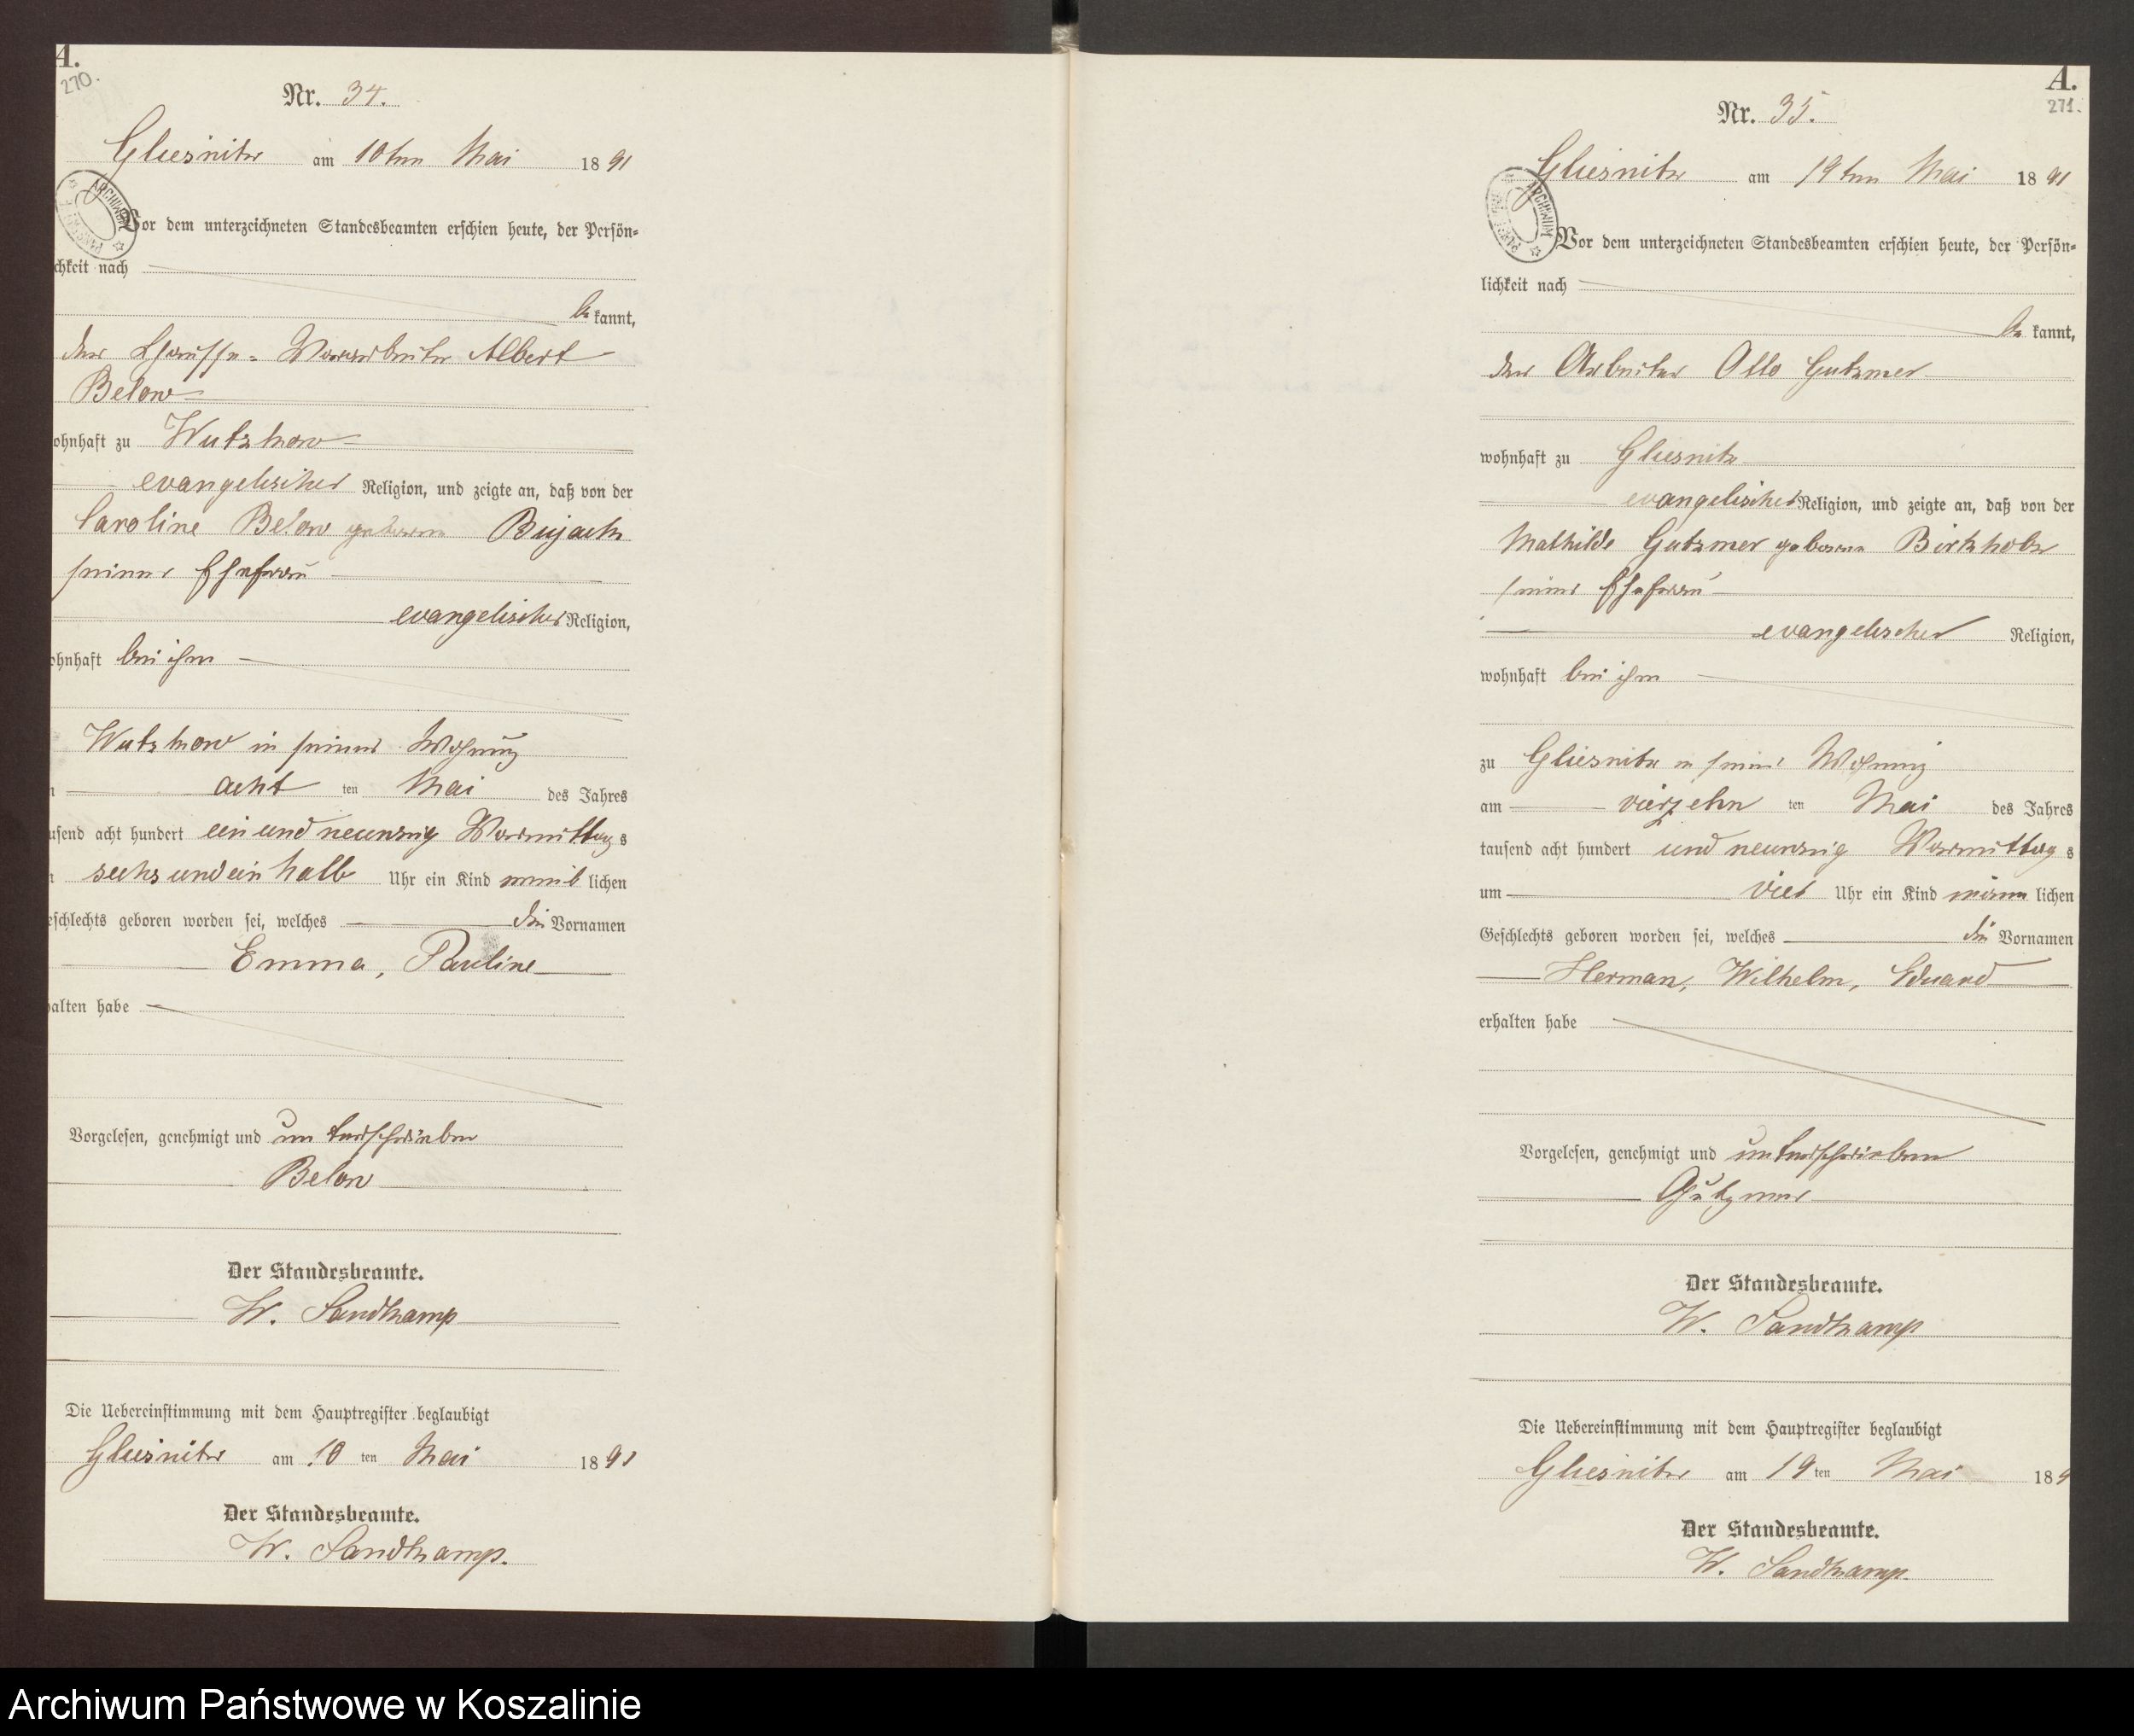 A.
270.
Nr. 34.
Gliesnitz am 10ten Mai 1891
Vor dem unterzeichneten Standesbeamten erschien heute, der Persön-
chkeit nach
be kannt,
der Chaussee-Vorarbeiter Albert
Below
ohnhaft zu Wutzkow
evangelischer Religion, und zeigte an, daß von der
Caroline Below geborene Bujack
seiner Ehefrau
evangelischer Religion,
ohnhaft bei ihm
Wutzkow in seiner Wohnung
acht ten Mai des Jahres
usend acht hundert ein und neunzig Vormittags
sechs und ein halb Uhr ein Kind weib lichen
eschlechts geboren worden sei, welches die Vornamen
Emma, Pauline
halten habe
Vorgelesen, genehmigt und unterschrieben
Below
Der Standesbeamte.
W. Sandkamp
Die Uebereinstimmung mit dem Hauptregister beglaubigt
Gliesnitz am 10 ten Mai 1891
Der Standesbeamte.
W. Sandkamp.
A.
271.
Nr. 35.
Gliesnitz am 19ten Mai 1891
Vor dem unterzeichneten Standesbeamten erschien heute, der Persön-
lichkeit nach
be kannt,
der Arbeiter Otto Gutzmer
wohnhaft zu Gliesnitz
evangelischer Religion, und zeigte an, daß von der
Mathilde Gutzmer geborene Birkholz
seiner Ehefrau
evangelischer Religion,
wohnhaft bei ihm
zu Gliesnitz in seiner Wohnung
am vierzehn ten Mai des Jahres
tausend acht hundert und neunzig Vormittags
um vier Uhr ein Kind männ lichen
Geschlechts geboren worden sei, welches die Vornamen
Herman, Wilhelm, Eduard
erhalten habe
Vorgelesen, genehmigt und unterschrieben
Gutzmer
Der Standesbeamte.
W. Sandkamp
Die Uebereinstimmung mit dem Hauptregister beglaubigt
Gliesnitz am 19 ten Mai 189
Der Standesbeamte.
W. Sandkamp.
Archiwum Państwowe w Koszalinie